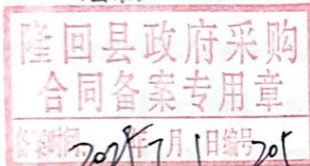 隆回县政府采购
合同备案专用章
备案时间:2024年7月1日编号201